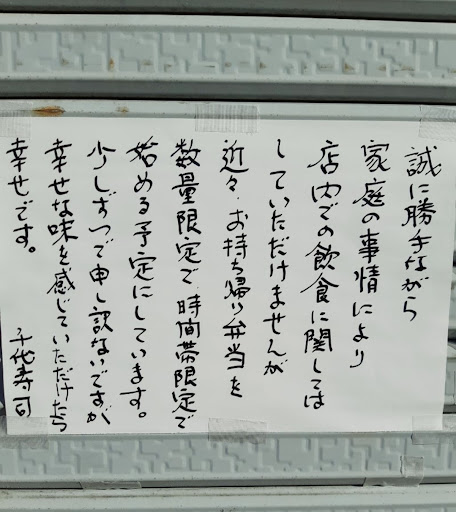 誠に勝手ながら
家庭の事情により
店内での飲食に関しては
していただけませんが
近々、お持ち帰り弁当を
数量限定で、時間帯限定で
始める予定にしています。
少しずつで申し訳ないですが
幸せな味を感じていただけたら
幸せです。
千代寿司